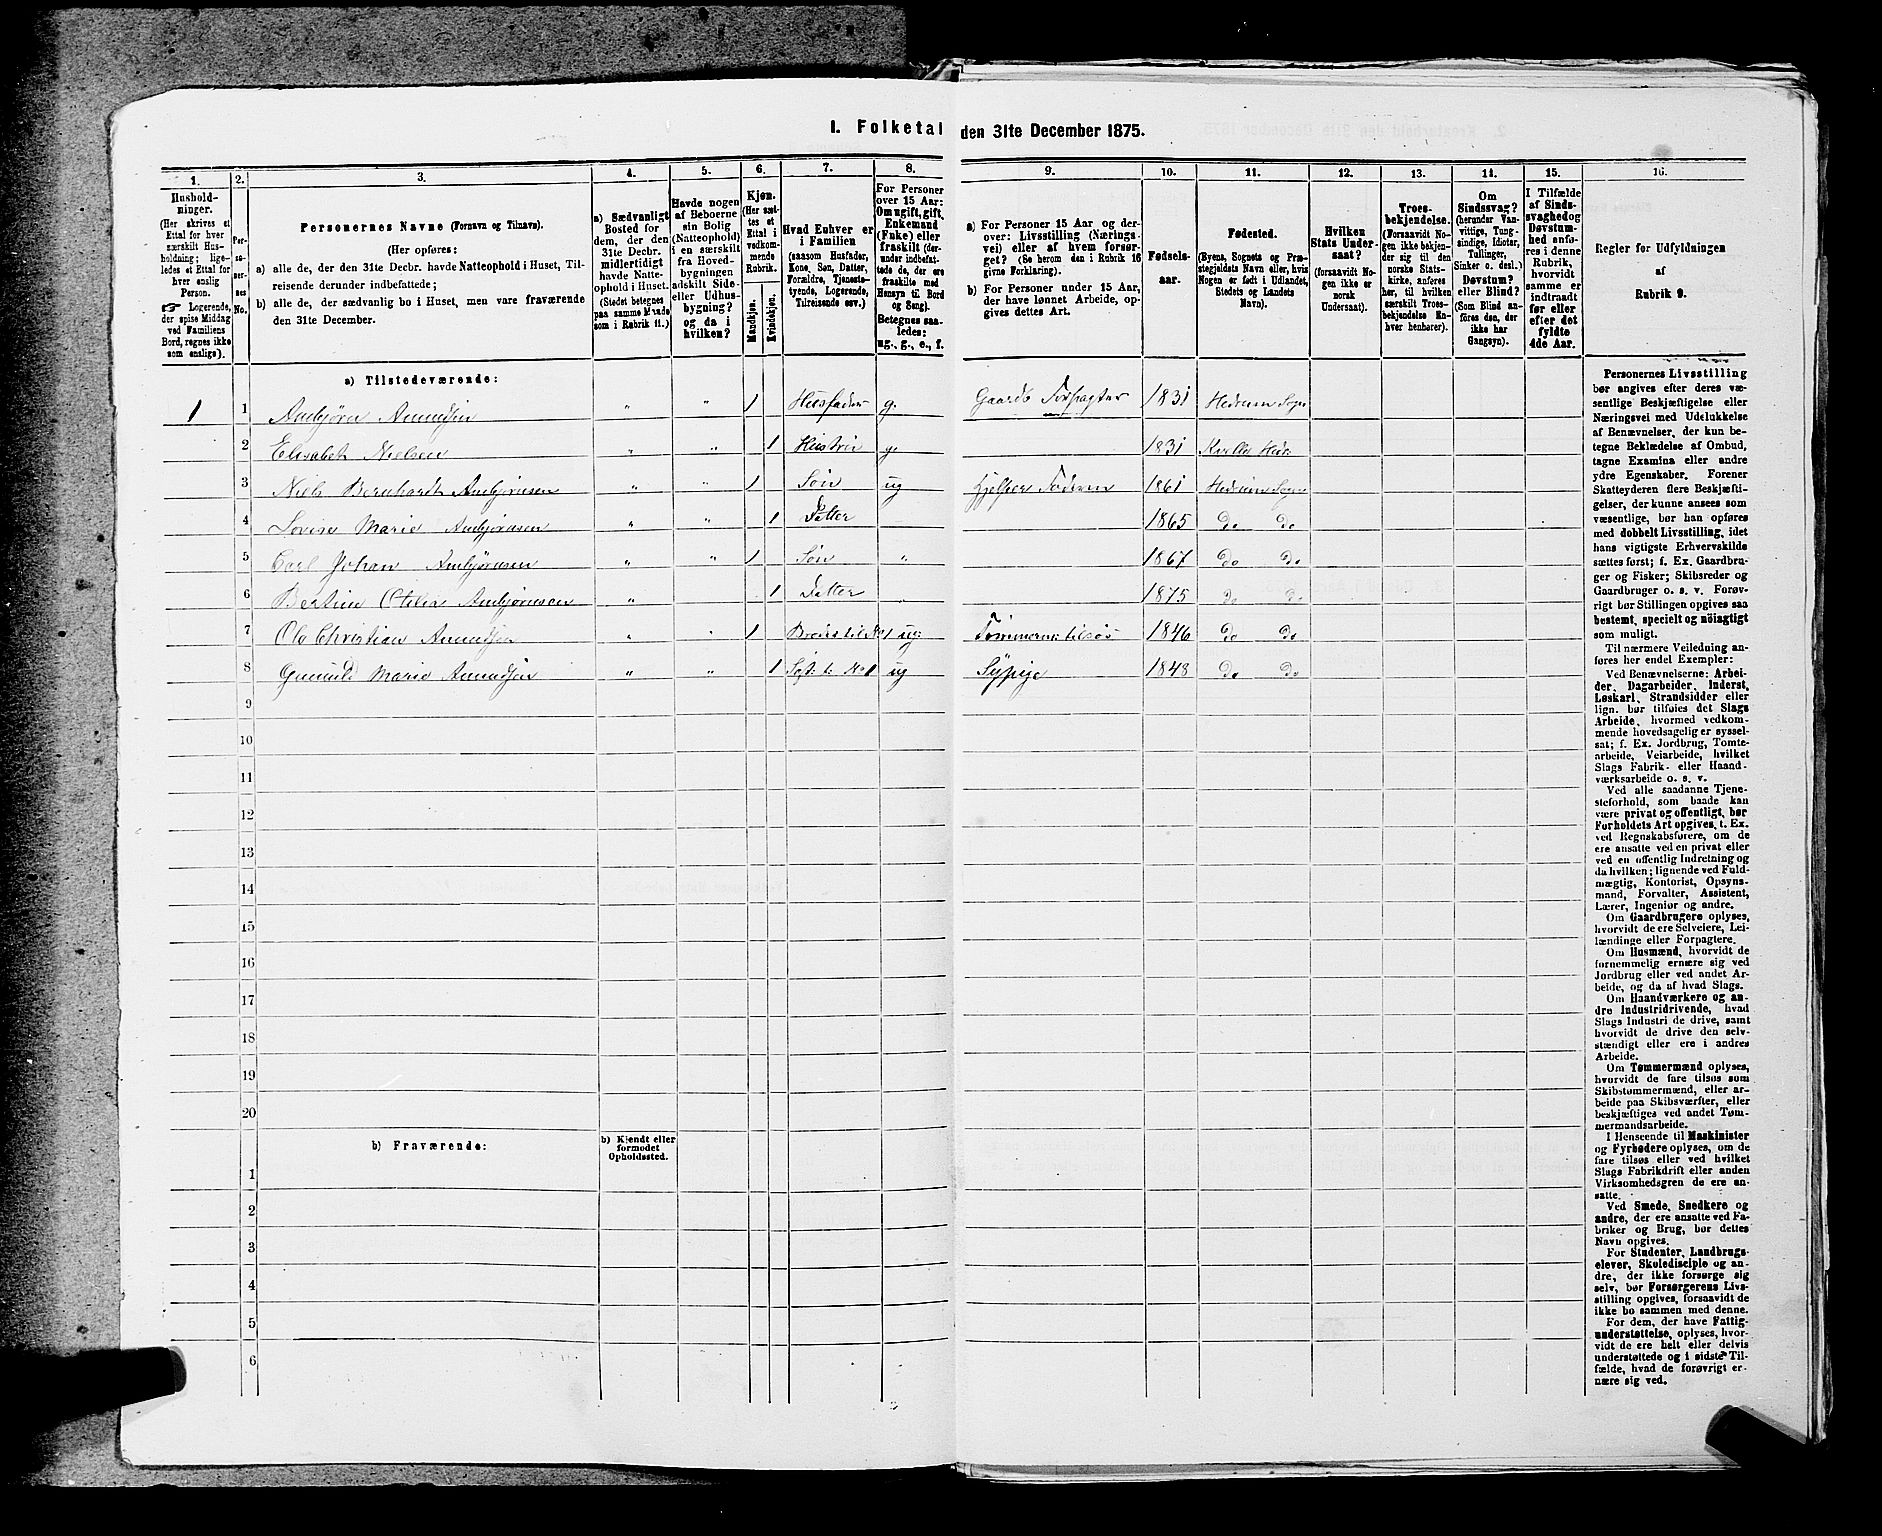 I. Folketal den 31te December 1875.
1. 2. 3. 4. 5. 6. 7. 8. 9. 10. 11. 12. 13. 14. 15. 16.
Hushold-
ninger.
(Her skrives et
Ettal for hver
særskilt Hus-
holdning; lige-
ledes et Ettal for
hver enslig
Person.
☞ Logerende,
der spise Middag
ved Familiens
Bord, regnes ikke
som enslige).
Per-
soner-
nes
No.
Personernes Navne (Fornavn og Tilnavn).
(Her opføres:
a) alle de, der den 31te Decbr. havde Natteophold i Huset, Til-
reisende derunder indbefattede;
b) alle de, der sædvanlig bo i Huset, men vare fraværende
den 31te December.
a) Sædvanligt
Bosted for
dem, der den
31te Decbr.
midlertidigt
havde Natte-
ophold i Huset.
(Stedet betegnes
paa samme Maade
som i Rubrik 11.)
Havde nogen
af Beboerne
sin Bolig
(Natteophold)
i en særskilt
fra Hoved-
bygningen
adskilt Side-
eller Udhus-
bygning?
og da i
hvilken?
Kjøn.
(Her sæt-
tes et
Ettal i
vedkom-
mende
Rubrik.
Mandkjøn.
Kvindekjøn.
Hvad Enhver er
i Familien
(saasom Husfader,
Kone, Søn, Datter,
Forældre, Tjeneste-
tyende, Logerende,
Tilreisende osv.)
For Personer
over 15 Aar:
Om ugift, gift,
Enkemand
(Enke) eller
fraskilt (der-
under indbefat-
tede de, der ere
fraskilte med
Hensyn til Bord
og Seng).
Betegnes saa-
ledes:
ug., g., e., f.
a) For Personer 15 Aar og der-
over: Livsstilling (Nærings-
vei) eller af hvem forsør-
get? (Se herom den i Rubrik 16
givne Forklaring).
b) For Personer under 15 Aar,
der have lønnet Arbeide, op-
gives dettes Art.
Fødsels-
aar.
Fødested.
(Byens, Sognets og Præ-
stegjeldets Navn eller, hvis
Nogen er født i Udlandet,
Stedets og Landets
Navn).
Hvilken
Stats Under-
saat?
(forsaavidt No-
gen ikke er
norsk
Undersaat).
Troes-
bekjendelse.
(Forsaavidt No-
gen ikke bekjen-
der sig til den
norske Stats-
kirke, anføres
her, til hvilken
særskilt Troes-
bekjendelse En-
hver henhører).
Om
Sindssvag?
(herunder Van-
vittige, Tung-
sindige, Idioter,
Tullinger,
Sinker o. desl.)
Døvstum?
eller Blind?
(Som Blind an-
føres den, der
ikke har
Gangsyn).
I Tilfælde
af Sinds-
svaghed og
Døvstum-
hed anfø-
res i denne
Rubrik,
hvorvidt
samme er
indtraadt
før eller
efter det
fyldte
4de Aar.
Regler for Udfyldningen
af
Rubrik 9.
a) Tilstedeværende:
1 1 Anbjørn Amundsen " " 1 Husfader g. Gaards Forpagter 1831 Hedrum Sogn
2 Elisabet Nielsen " " 1 Hustru g. 1831 Kvelle Hed:
3 Niels Bernhardt Anbjørnsen " " 1 Søn ug hjelper Faderen 1861 Hedrum Sogn
4 Lovise Marie Anbjørnsen " " 1 Datter 1865 Do Do
5 Carl Johan Anbjørnsen " " 1 Søn " 1867 Do Do
6 Bertine Otilia Anbjørnsen " 1 Datter " 1875 Do Do
7 Ole Christian Amundsen " " 1 Broder til No 1 ug: Tømmerm: tilsøs 1846 Do Do
8 Gunnild Marie Amundsen " " 1 Søst: t: No 1 ug Sypige 1848 Do Do
9
10
11
12
13
14
15
16
17
18
19
20
b) Fraværende:
b) Kjendt eller
formodet
Opholdssted.
1
2
3
4
5
6
Personernes Livsstilling
bør angives efter deres væ-
sentlige Beskjæftigelse eller
Næringsvei med Udelukkelse
af Benævnelser, der kun be-
tegne Beklædelse af Ombud,
tagne Examina eller andre
ydre Egenskaber. Forener
Skatteyderen flere Beskjæfti-
gelser, der kunne ansees som
væsentlige, bør han opføres
med dobbelt Livsstilling, idet
hans vigtigste Erhvervskilde
sættes først; f. Ex. Gaardbru-
ger og Fisker; Skibsreder og
Gaardbruger o. s. v. Forøv-
rigt bør Stillingen opgives saa
bestemt, specielt og nøiagtigt
som muligt.
Til nærmere Veiledning an-
føres her endel Exempler:
Ved Benævnelserne: Arbei-
der, Dagarbeider, Inderst,
Løskarl, Strandsidder eller
lign. bør tilføies det Slags
Arbeide, hvormed vedkom-
mende hovedsagelig er syssel-
sat; f. Ex. Jordbrug, Tomte-
arbeide, Veiarbeide, hvilket
Slags Fabrik- eller Haand-
værksarbeide o. s. v.
Ved alle saadanne Tjene-
steforhold, som baade kan
være privat og offentligt, bør
Forholdets Art opgives, t. Ex.
ved Regnskabsførere, om de
ere ansatte ved en privat eller
ved en offentlig Indretning og
da hvilken; lignende ved Fuld-
mægtig, Kontorist, Opsyns-
mand, Forvalter, Assistent,
Lærer, Ingeniør og andre.
Om Gaardbrugere oplyses,
hvorvidt de ere Selveiere, Lei-
lændinge eller Forpagtere.
Om Husmænd, hvorvidt de
fornemmelig ernære sig ved
Jordbrug eller ved andet Ar-
beide, og da af hvad Slags.
Om Haandværkere og an-
dre Industridrivende, hvad
Slags Industri de drive, samt
hvorvidt de drive den selv-
stændigt eller ere i andres
Arbeide.
Om Tømmermænd oplyses,
hvorvidt de fare tilsøs som
Skibstømmermænd, eller ar-
beide paa Skibsværfter, eller
beskjæftiges ved andet Tøm-
mermandsarbeide.
I Henseende til Maskinister
og Fyrbødere oplyses, om de
fare tilsøs eller ved hvilket
Slags Fabrikdrift eller anden
Virksomhedsgren de ere an-
satte.
Ved Smede, Snedkere og
andre, der ere ansatte ved Fa-
briker og Brug, bør dettes
Navn opgives.
For Studenter, Landbrugs-
elever, Skoledisciple og an-
dre, der ikke forsørge sig
selv, bør Forsørgerens Livs-
stilling opgives, forsaavidt de
ikke bo sammen med denne.
For dem, der have Fattig-
understøttelse, oplyses, hvor-
vidt de ere helt eller delvis
understøttede og i sidste Til-
fælde, hvad de forøvrigt er-
nære sig ved.